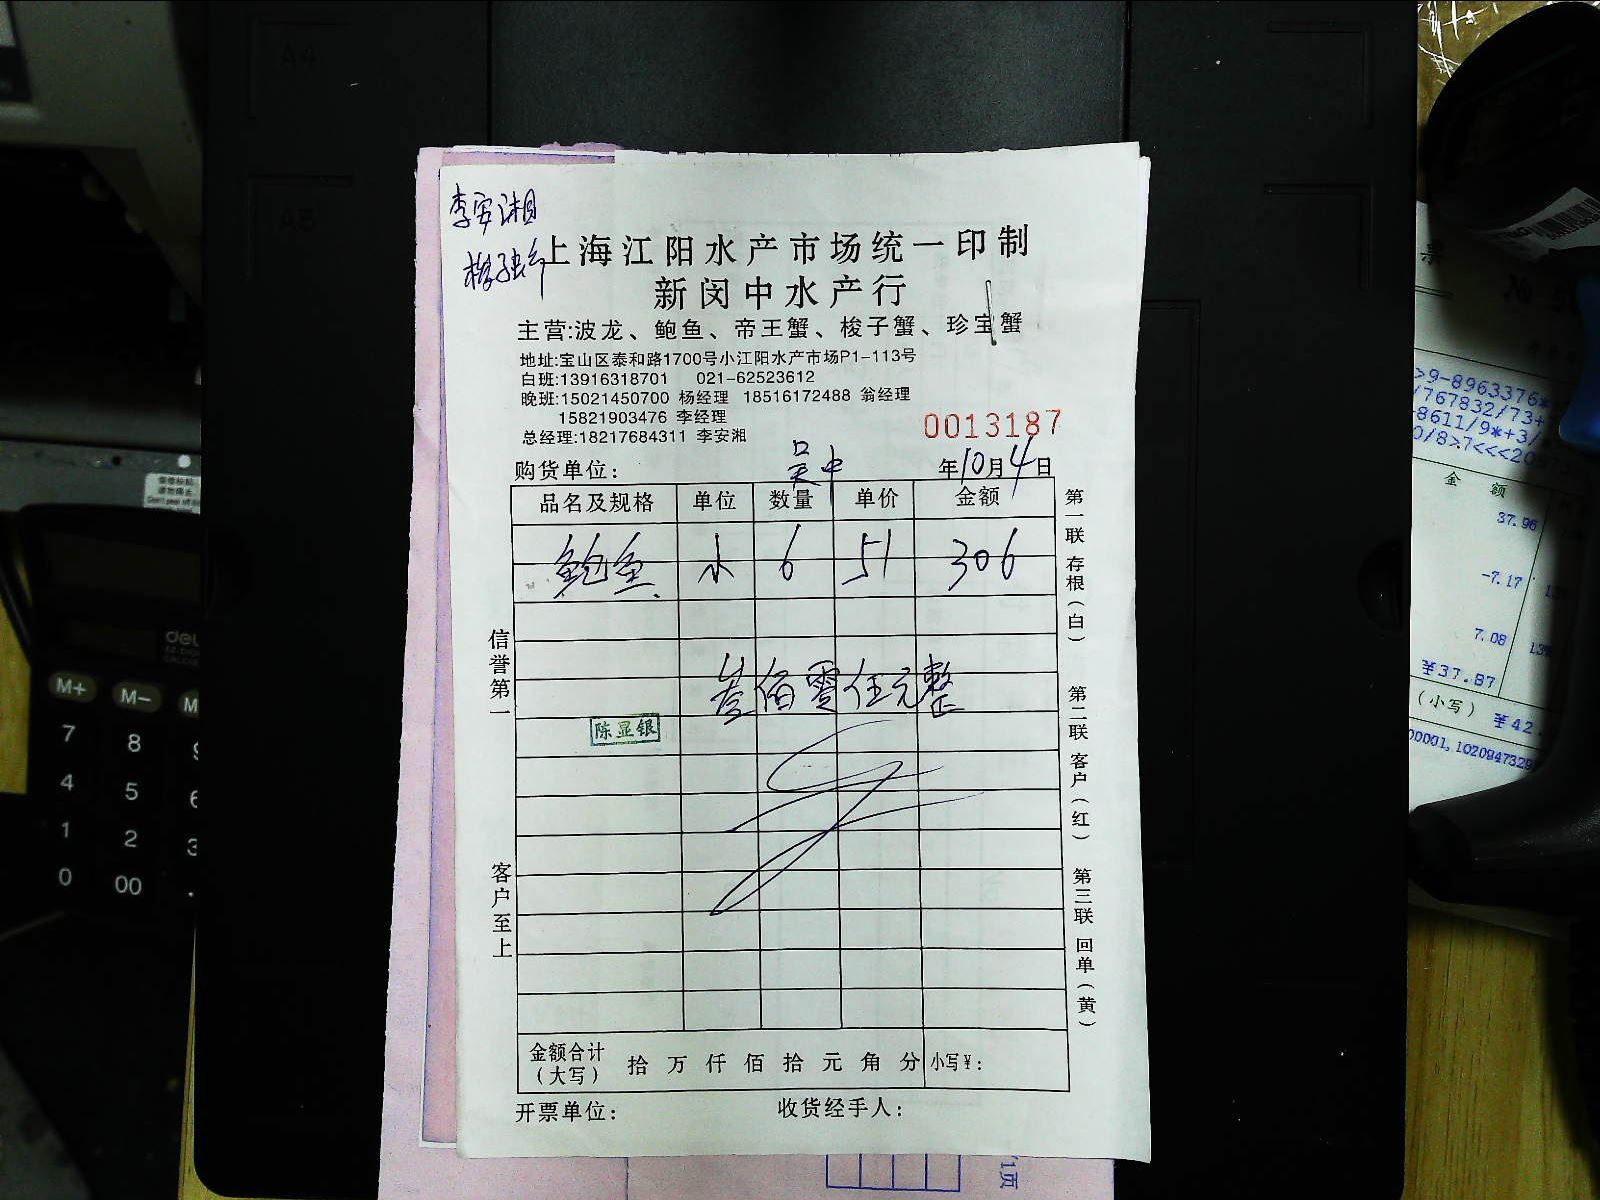 李安湘
上海江阳水产市场统一印制
新闵中水产行
主营:波龙、鲍鱼、帝王蟹、梭子蟹、珍宝蟹
地址:宝山区泰和路1700号小江阳水产市场P1-113号
白班:13916318701 021-62523612
晚班:15021450700 杨经理 18516172488 翁经理
15821903476 李经理
总经理:18217684311 李安湘
0013187
购货单位: 吴中 年10月4日
品名及规格 单位 数量 单价 金额
鲍鱼 6 51 306
叁佰零 元整
陈显银
信誉第一
客户至上
第一联 存根(白)
第二联 客户(红)
第三联 回单(黄)
金额合计(大写) 拾 万 仟 佰 拾 元 角 分 小写¥:
开票单位: 收货经手人:
A4
A5
M+ M-
7 8
4 5 6
1 2 3
0 00 .
票
金 额
37.96
-7.17
7.08
¥37.87
(小写) ¥42.
1页